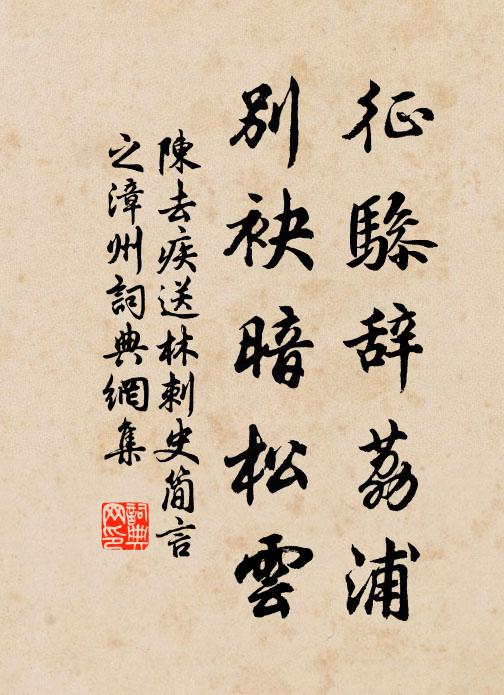 征驂辞荔浦
別袂暗松雲
陳去疾送林刺史简言
之漳州詞典網集
詞典
网印